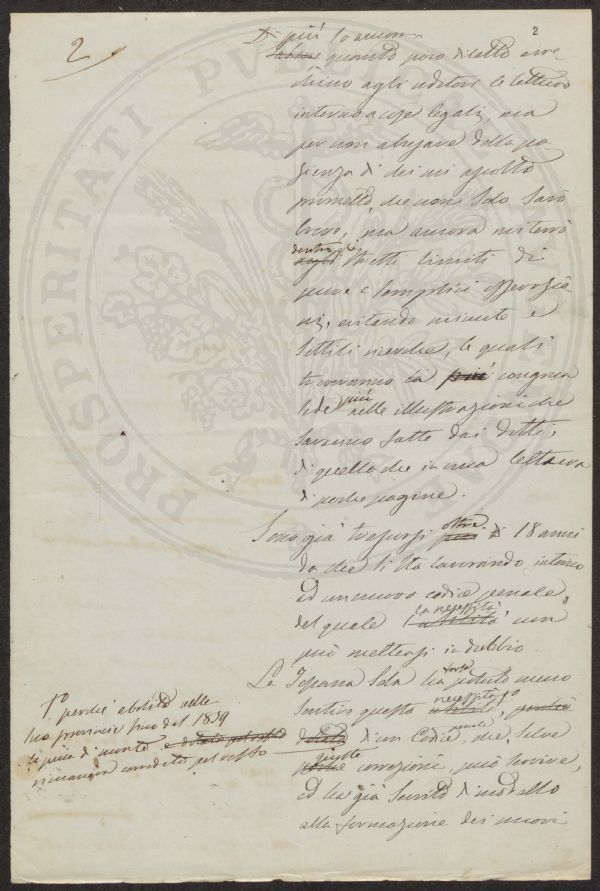 2
2
Di più so ancora
quanto poco diletto arre-
chino agli uditori le letture
intorno a cose legali, ma
per non abusare della pa-
zienza di chi mi ascolta
prometto, che non solo sarò
breve, ma ancora mi terrò
dentro gli
stretti limiti di
pure e semplici osservazio-
ni, evitando minute e
sottili ricerche, le quali
troveranno più congrua
sede più nelle illustrazioni che
saranno fatte dai dotti,
di quello che in una lettura
di poche pagine.
Sono già trascorsi oltre 18 anni
da che si sta lavorando intorno
ad un nuovo codice penale,
la necessità
del quale non
può mettersi in dubbio.
La Toscana sola ha forse potuto meno
sentire questa necessità
di un Codice, che, salve
giuste
correzioni, può servire,
ed ha già servito di modello
alla formazione dei nuovi
perché abolita nelle
sue provincie fino dal 1859
la pena di morte
rimaneva corredata
PROSPERITATI PUBLICAE AUGENDAE